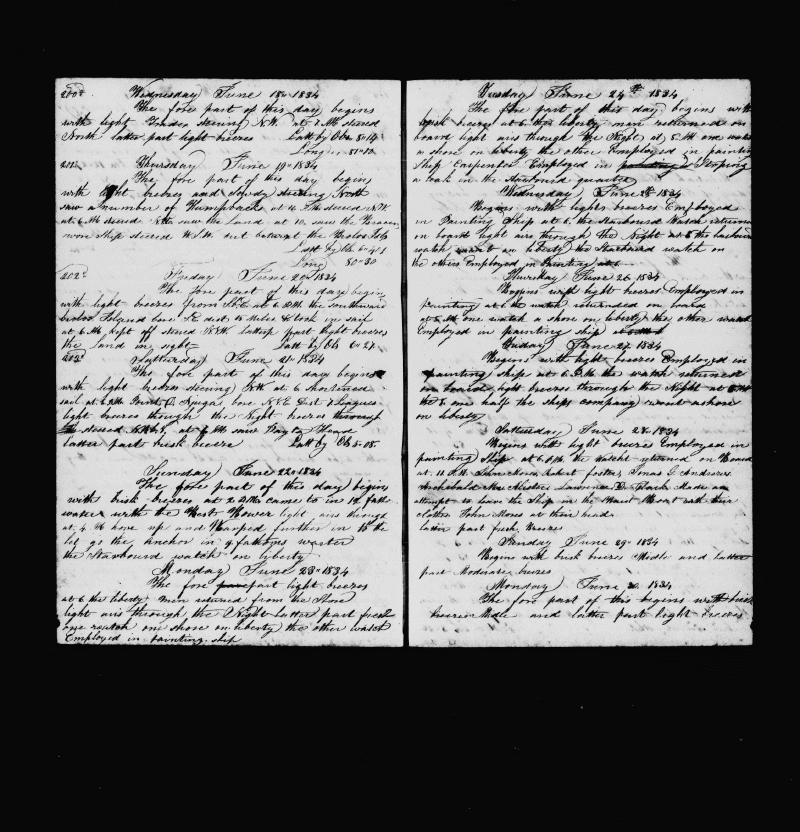 200d Wednesday June 18th 1834
The fore part of this day begins
with light Breeses steering N.W. at 7 AM steered
North latter part light breeses Latt by Obs 8=14
Long 81=12
201st Thursday June 19th 1834
The fore part of this day begins
with light breeses and cloudy steering North
saw a number of Humpbacks at 4 P.M. steered N.W.
at 6 AM steered NW saw the land at 10 saw the
Ship steered W.S.W. out between the Lobos Isls
Latt by Obs 6=41 S
Long 80=30
202d Friday June 20th 1834
The fore part of this day begins
with light breeses from S.E. at 6 P.M. the southward
Lobos Island bore S.E. dist 10 Miles took in sail
at 6 AM kept off steered N.N.W. latter part light breeses
the land in sight Latt by Obs 6=27
203d Satturday June 21st 1834
The fore part of this day begins
with light breeses steering N.W. at 6 shortened
sail at 6 AM Point Aguga bore N.N.E. Dist 7 Leagues
light breeses through the Night breeses through
steered at 6 AM saw Payta Head
latter part brisk breese Latt by Obs 5=08
Sunday June 22nd 1834
The fore part of this day begins
with brisk breeses at 2 P.M. came to in 12 fath
water with the Best Bower light airs through
at 4 AM hove up and Warped further in 10 AM
let go the Anchor in 9 fathoms water
the Starbourd watch on liberty
Monday June 23rd 1834
The fore part light breeses
at 6 the liberty men returned from the Shore
light airs through the Night latter part fresh
one watch on shore on liberty the other watch
Employed in painting ship
Tuesday June 24th 1834
The fore part of this day begins with
brisk breeses at 6 the liberty men returned on
board light airs through the Night at 8 AM one watch
a shore on liberty the others Employed in painting
Ship Carpenter Employed in Stoping
a leak in the Starbourd quarter
Wednesday June 25th 1834
Begins with lights breeses Employed
in Painting Ship at 6 the Starbourd Watch returned
on board light airs through the Night at 8 the larbourd
watch went on liberty the Starbord watch on
the others Employed in Painting
Thursday June 26 1834
Begins with light breeses Employed in
painting at 6 the watch returned on board
at 8 AM one watch a shore on liberty the other watch
Employed in painting ship
Friday June 27 1834
Begins with light breeses Employed in
painting ship at 6 P.M. the watch returned
on board light breeses through the Night at 8 AM
the one half the ships company went ashore
on liberty
Satturday June 28th 1834
Begins with light breese Employed in
painting Ship at 6 P.M. the Watch returned on Board
at 11 P.M. Robert foster, Jonas G Andrews
Archibald Lawrence D Made an
attempt to leave the Ship in the Waist Boat with their
clothes John Mone at their head
latter part fresh Breeses
Sunday June 29th 1834
Begins with brisk breeses Middle and latter
part Moderate breeses
Monday June 30 1834
The fore part of this begins with brisk
breeses Midle and latter part light breeses